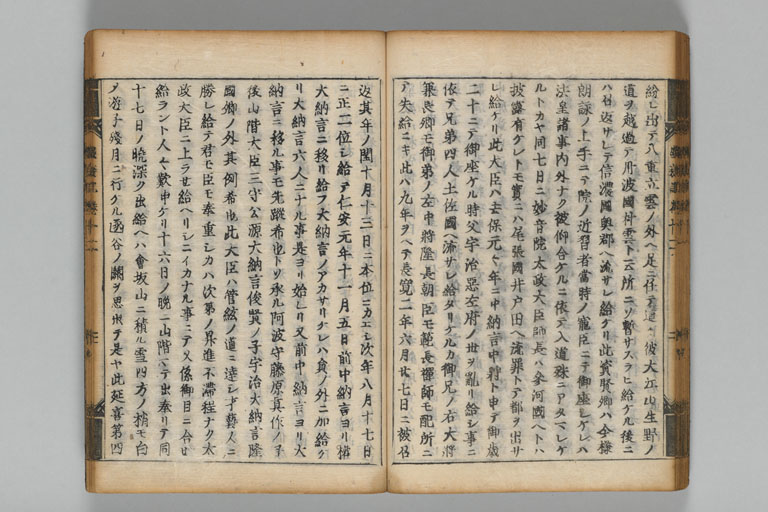 紛レ出テ八重立雲ノ外ヘ足ニ任テ迷ツヽ彼大江山生野ノ
道ヲ越過テ丹波國村雲ト云所ニソ暫サスラヒ給ケル後ニ
ハ召返サレテ信濃國奥郡ヘ流サレ給ケリ此資賢卿ハ今様
朗詠ノ上手ニテ院ノ近習者當時ノ寵臣ニテ御座シケレハ
法皇諸事内外ナク被仰合ケルニ依テ入道殊ニアタマレケ
ルトカヤ同七日ニ妙音院太政大臣師長ハ参河國ヘトハ
披露有ケレトモ實ニハ尾張國井戸田ヘ流罪トテ都ヲ出サ
レ給ケリ此大臣ハ去保元々年ニ中納言中将ト申テ御歳
二十ニテ御座ケル時父宇治悪左府ノ世ヲ亂リ給シ事ニ
依テ兄弟四人土佐國ヘ流サレ給タリケルカ御兄ノ右大将
兼長卿モ御弟ノ左中将隆長朝臣モ範長禅師モ配所ニ
テ失給ニキ此ハ九年ヲヘテ長寛二年六月廿七日ニ被召
返其年ノ閏十月十三日ニ本位ニカエシ次年八月十七日
ニ正二位シ給テ仁安元年十一月五日前中納言ヨリ權
大納言ニ移リ給フ大納言ノアカサリケレハ員ノ外ニ加給ケ
リ大納言六人ニナル事是ヨリ始レリ又前中納言ヨリ大
納言ニ移ル事モ先蹤希也トソ承ル阿波守藤原真作ノ子
後山階大臣三守公源大納言俊賢ノ子宇治大納言隆
國卿ノ外其例希也此大臣ハ管絃ノ道ニ達シ才藝人ニ
勝レ給テ君モ臣モ奉重シカハ次第ノ昇進不滞程ナク太
政大臣ニ上ラセ給ヘリシニイカナル事ニテ又係御目ニ合セ
給ラント人々歎申ケリ十六日ノ晩ニ山階ヘテ出奉リテ同
十七日ノ暁深ク出給ヘハ會坂山ニ積ル雪四方ノ梢モ白
ノ遊子残月ニ行ケル函谷ノ關ヲ思出テ是ヤ此延喜第四